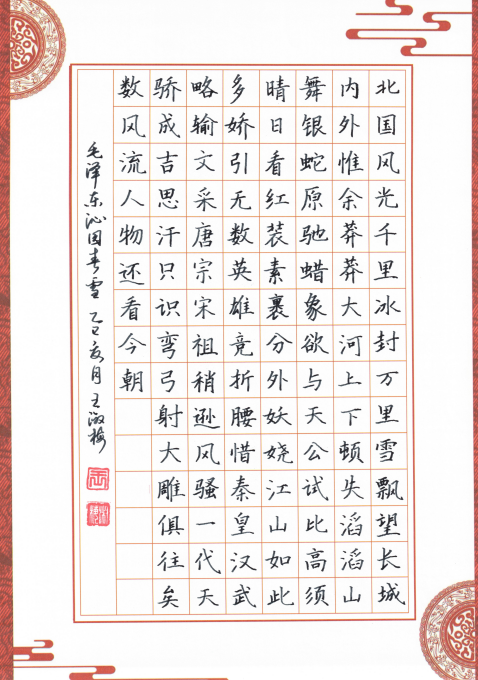 北国风光千里冰封万里雪飘望长城
内外惟余莽莽大河上下顿失滔滔山
舞银蛇原驰蜡象欲与天公试比高须
晴日看红装素裹分外妖娆江山如此
多娇引无数英雄竞折腰惜秦皇汉武
略输文采唐宗宋祖稍逊风骚一代天
骄成吉思汗只识弯弓射大雕俱往矣
数风流人物还看今朝
毛泽东沁园春雪 乙巳亥月 王淑梅